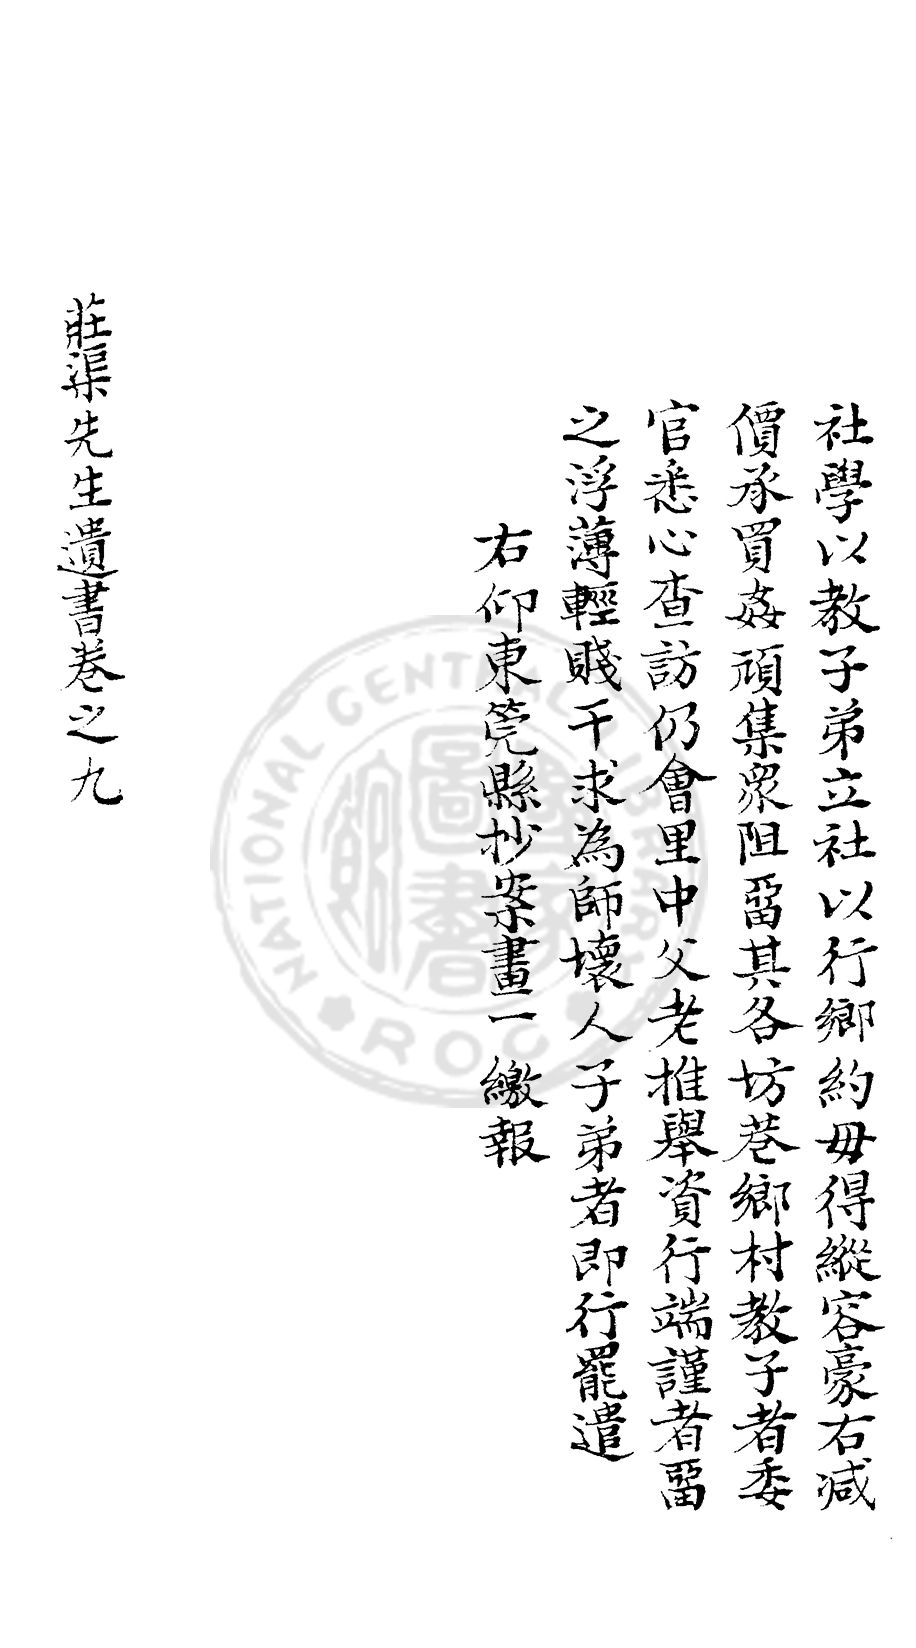 社學以教子弟立社以行鄉約毋得縱容豪右减
價承買姦頑集眾阻畱其各坊巷鄉村教子者委
官悉心查訪仍會里中父老推舉資行端謹者畱
之浮薄輕賤干求為師壞人子弟者即行罷遣
右仰東筦縣抄案畫一繳報
莊渠先生遺書卷之九
NATIONAL CENTRAL LIBRARY
ROC
國家圖書館